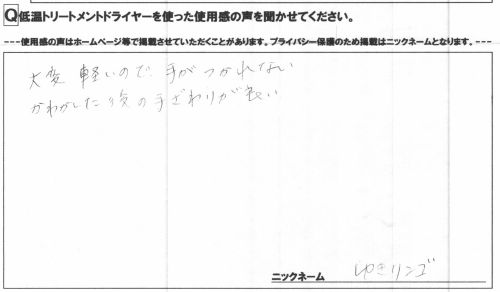 Q低温トリートメントドライヤーを使った使用感の声を聞かせてください。
---使用感の声はホームページ等で掲載させていただくことがあります。プライバシー保護のため掲載はニックネームとなります。---
大変 軽いので 手が つかれない
かわかした後の手ざわりが良い
ニックネーム ゆきリンゴ